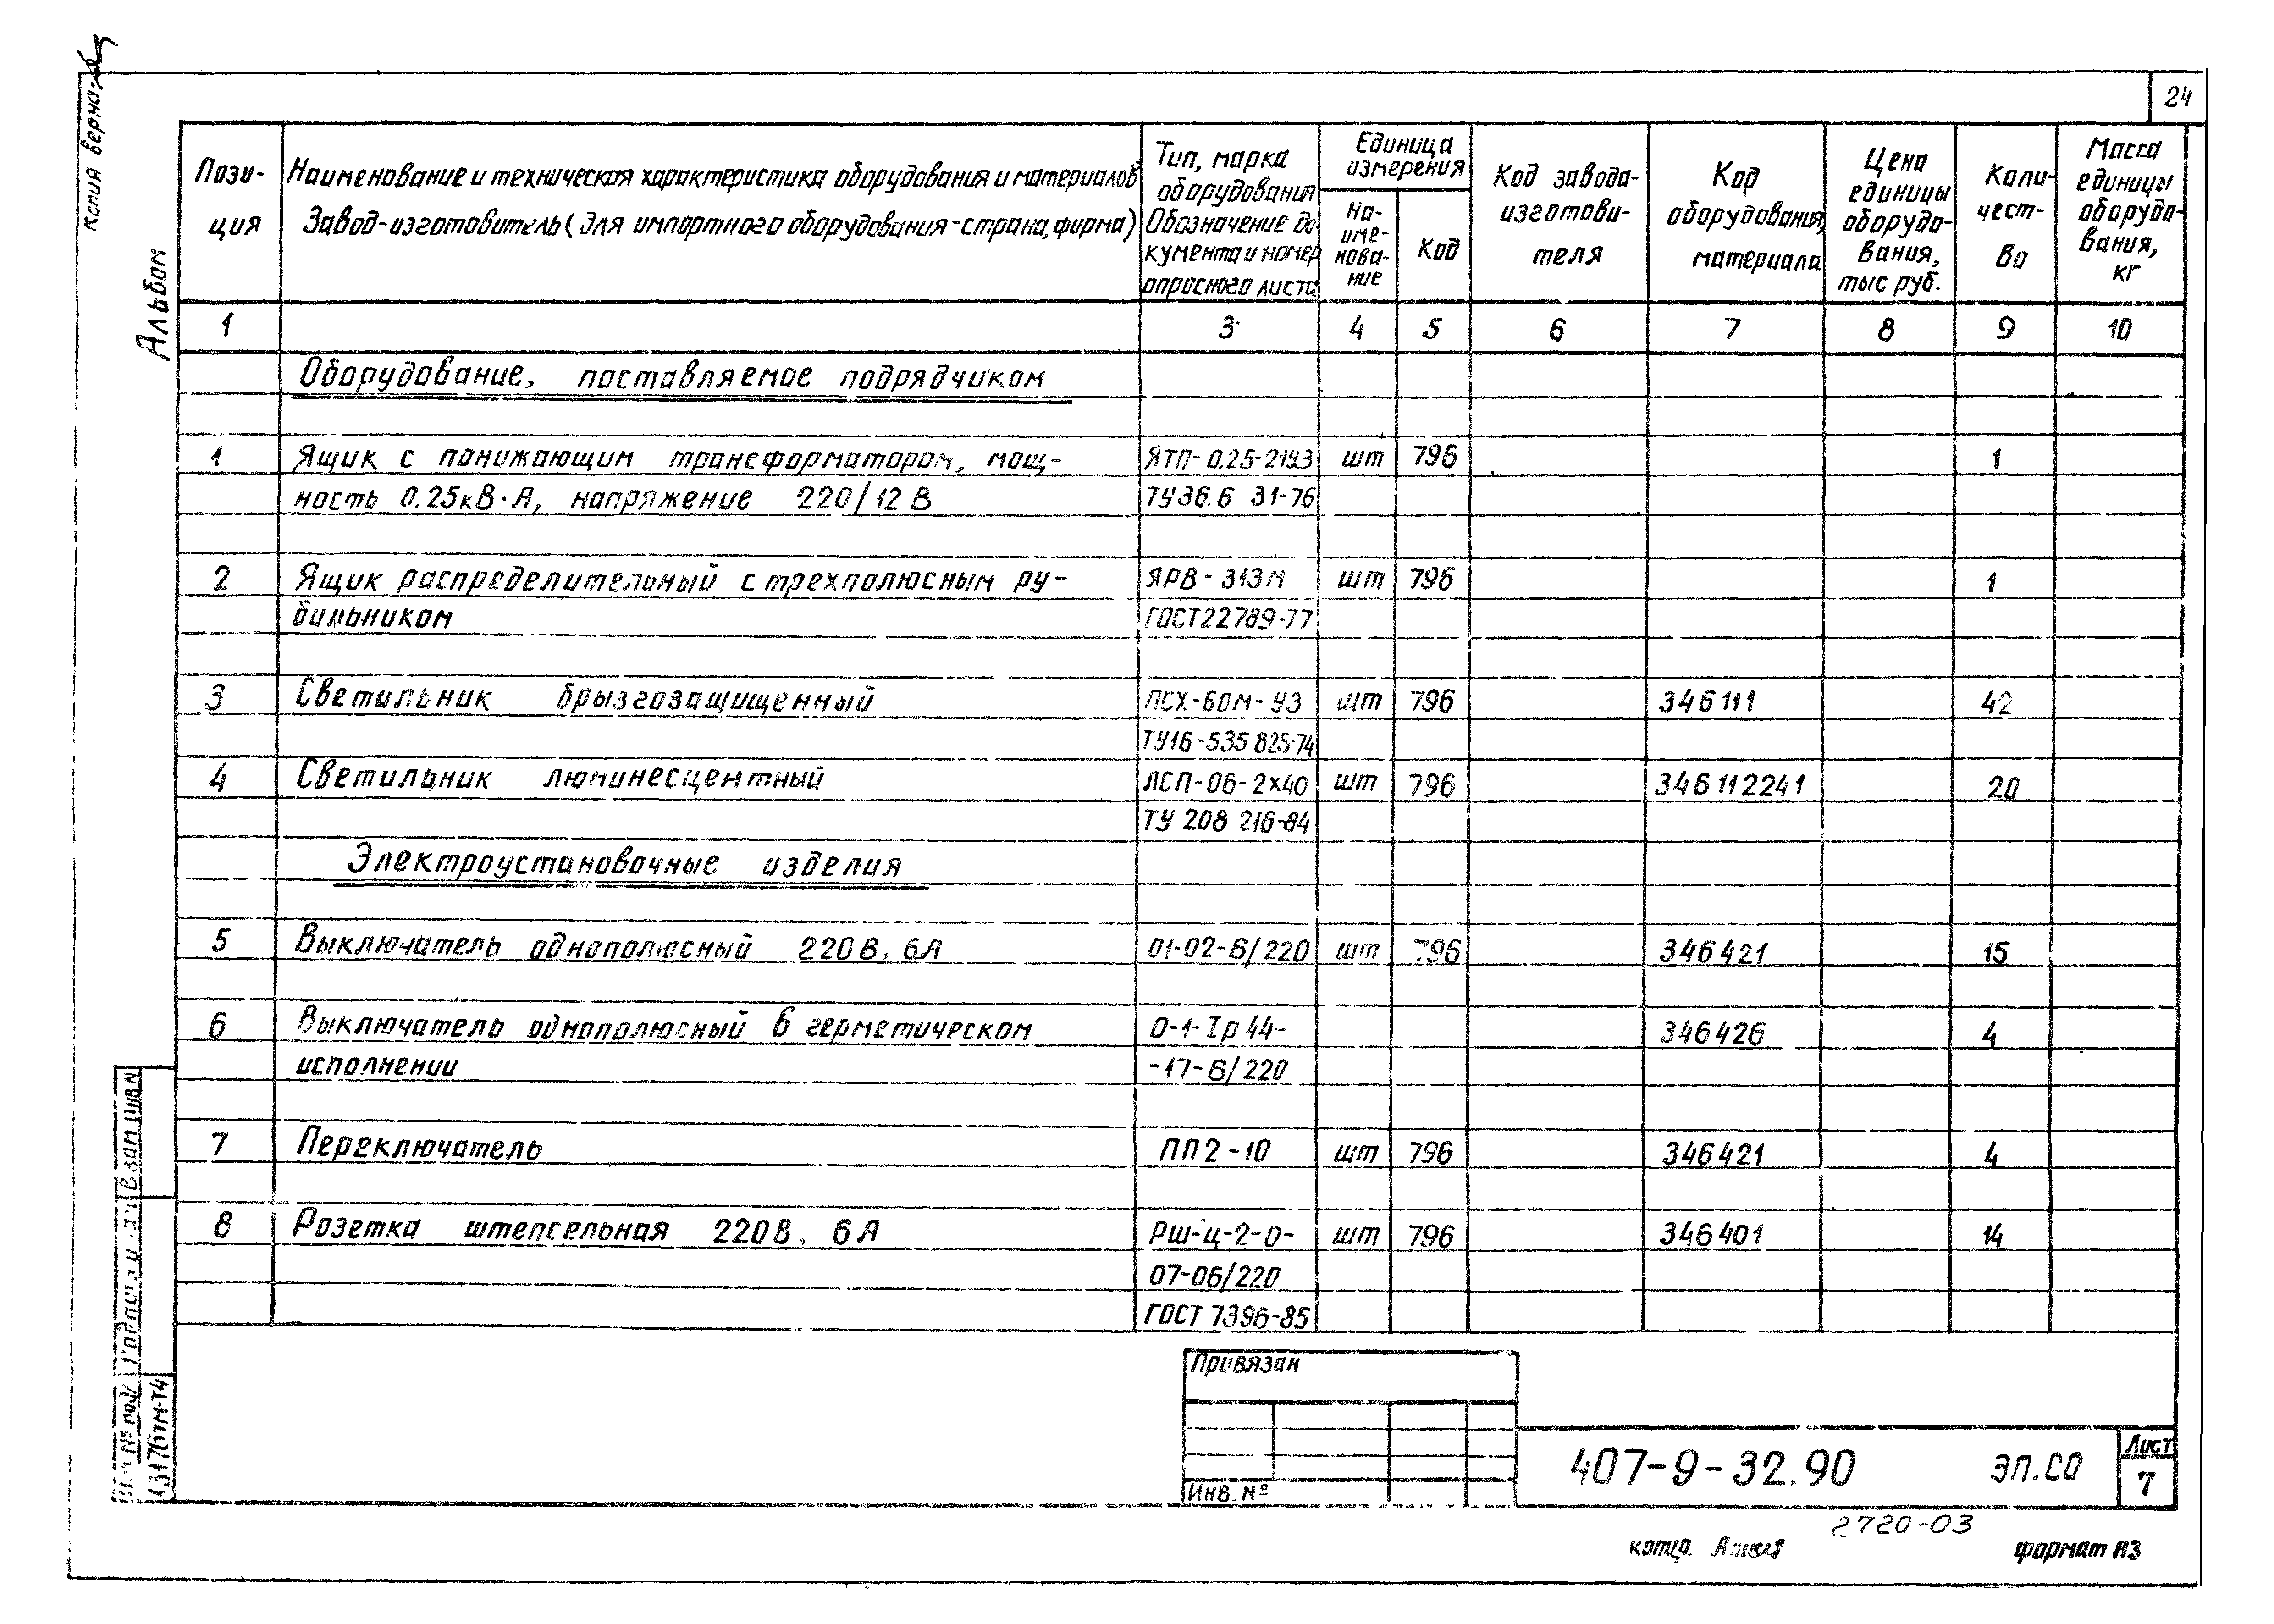 Копия верна:
24
Альбом
Пози-
ция
Наименование и техническая характеристика оборудования и материалов
Завод-изготовитель (для импортного оборудования-страна, фирма)
Тип, марка
оборудования
Обозначение до
кумента и номер
опросного листа
Единица
измерения
На-
име-
нова-
ние
Код
Код завода-
изготови-
теля
Код
оборудования,
материала
Цена
единицы
оборудо-
вания,
тыс руб.
Коли-
чест-
ва
Масса
единицы
оборудо-
вания,
кг
1 3 4 5 6 7 8 9 10
Оборудование, поставляемое подрядчиком
1 Ящик с понижающим трансформатором, мощ- ЯТП-0.25-21У3 шт 796 1
ность 0.25кВ·А, напряжение 220/12 В ТУ36.6 31-76
2 Ящик распределительный с трехполюсным ру- ЯРВ-313м шт 796 1
бильником ГОСТ22789-77
3 Светильник брызгозащищенный ПСХ-60м-У3 шт 796 346111 42
ТУ16-535 825-74
4 Светильник люминесцентный ЛСП-06-2х40 шт 796 346112241 20
ТУ 208 216-84
Электроустановочные изделия
5 Выключатель однополюсный 220В, 6А 01-02-6/220 шт 796 346421 15
6 Выключатель однополюсный в герметическом 0-1-Iр44- 346426 4
исполнении -17-6/220
7 Переключатель ПП2-10 шт 796 346421 4
8 Розетка штепсельная 220В, 6А РШ-ц-2-0- шт 796 346401 14
07-06/220
ГОСТ 7396-85
Привязан
Инв. №
407-9-32.90 ЭП.СО
Лист
7
Взам Инв.N
Подпись и
№ подл
13176тм-т4
2720-03
формат А3